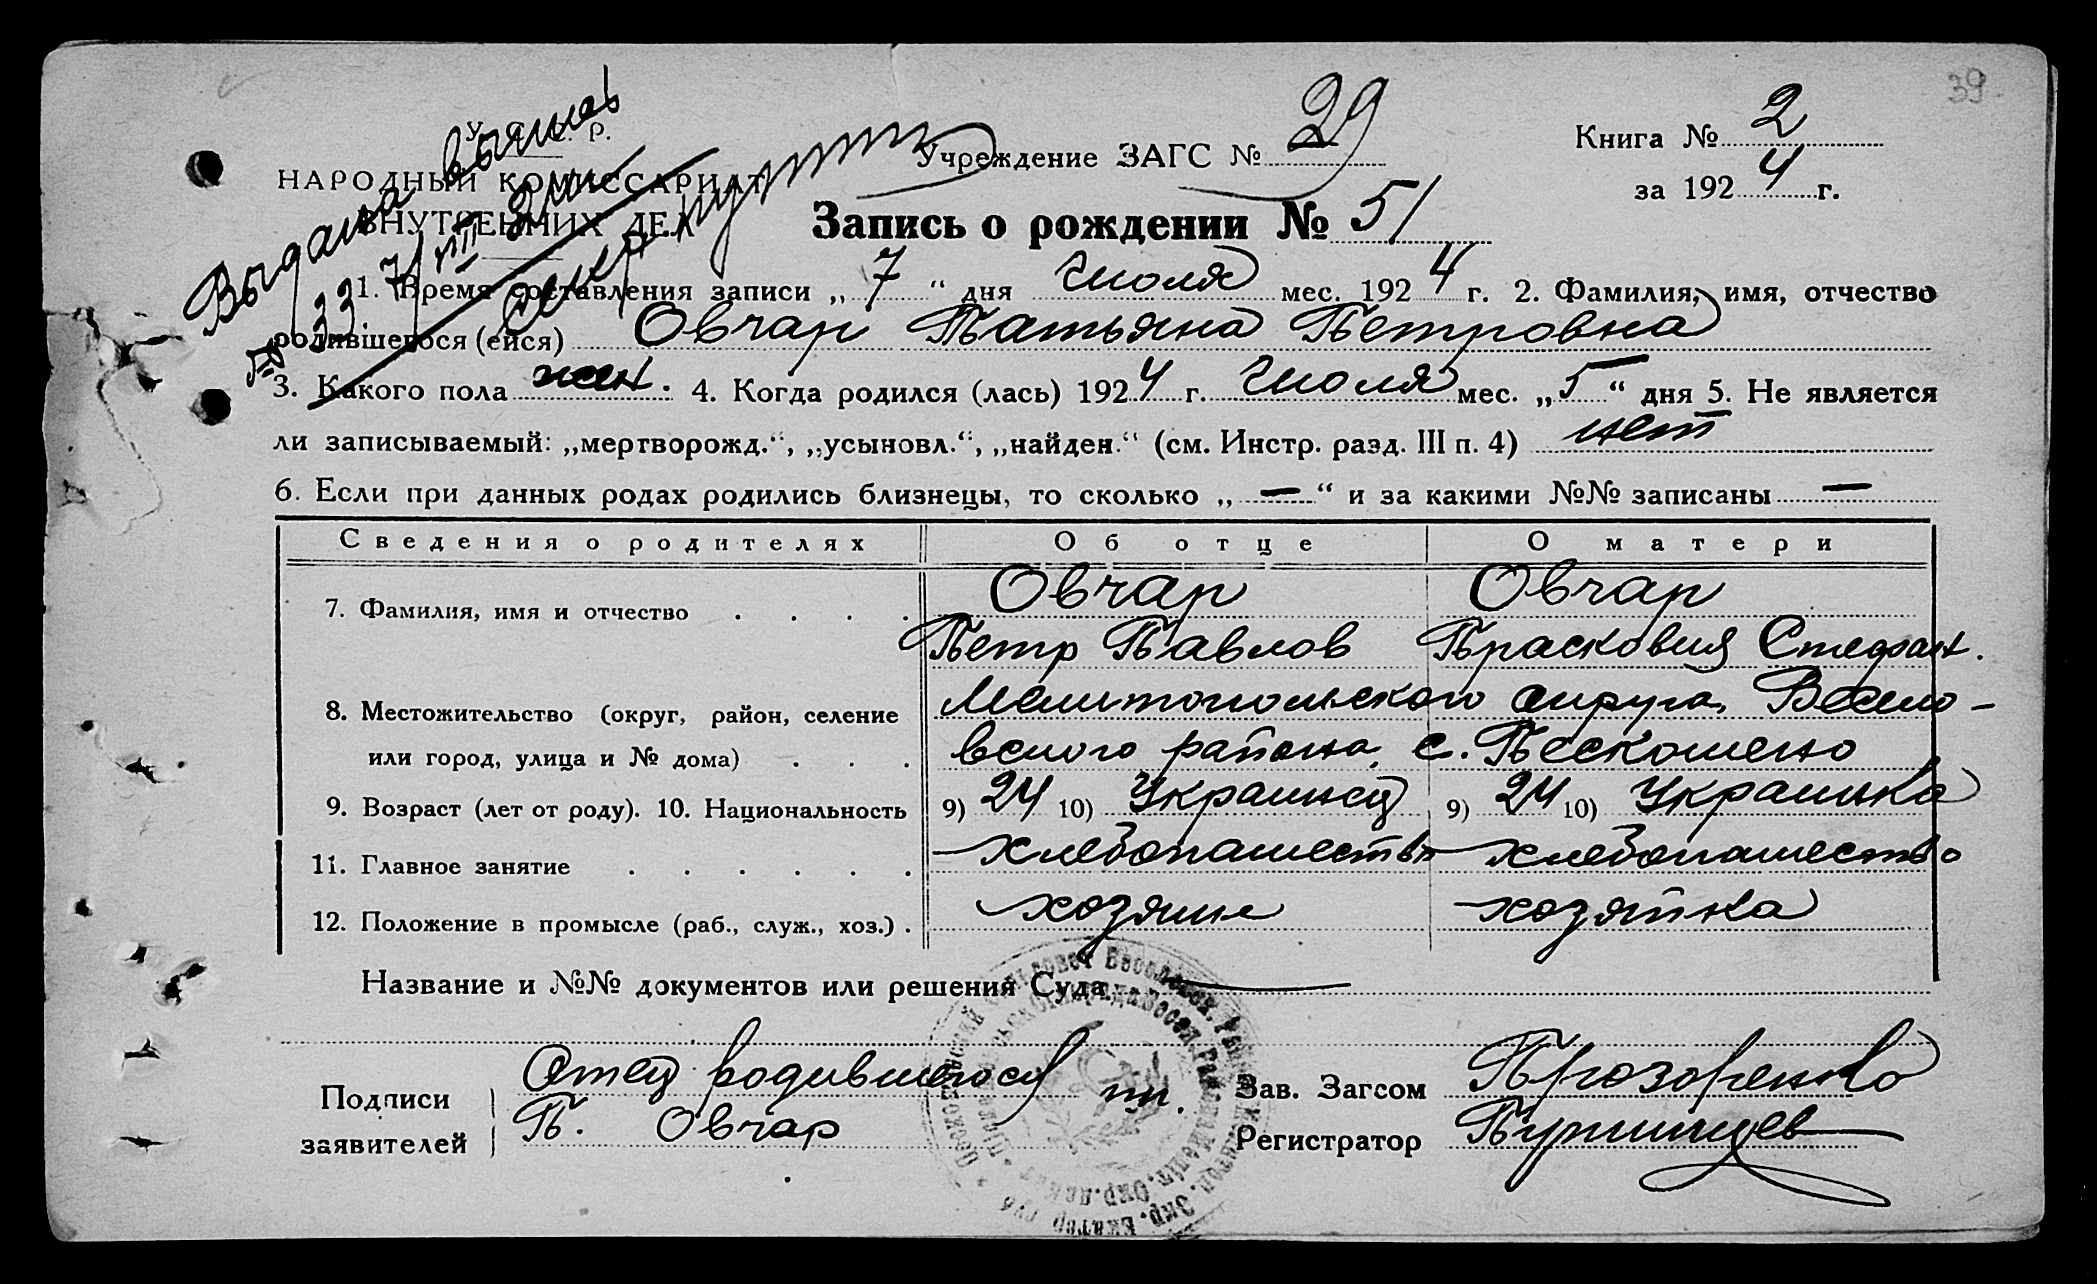 39
У. С. С. Р.
НАРОДНЫЙ КОМИССАРИАТ
ВНУТРЕННИХ ДЕЛ
Учреждение ЗАГС № 29
Книга № 2
за 1924 г.
Запись о рождении № 51
Выдана выпись
33 7/VIII
1. Время составления записи „7“ дня Июля мес. 1924 г. 2. Фамилия, имя, отчество
родившегося (ейся) Овчар Татьяна Петровна
3. Какого пола жен. 4. Когда родился (лась) 1924 г. Июля мес. „5“ дня 5. Не является
ли записываемый: „мертворожд.“, „усыновл.“, „найден.“ (см. Инстр. разд. III п. 4) нет
6. Если при данных родах родились близнецы, то сколько „—“ и за какими №№ записаны —
Сведения о родителях Об отце О матери
7. Фамилия, имя и отчество . . . . Овчар Овчар
Петр Павлов Прасковия Стефан.
8. Местожительство (округ, район, селение Мелитопольского округа, Весело-
или город, улица и № дома) . . . вского района, с. Пескошено
9. Возраст (лет от роду). 10. Национальность 9) 24 10) Украинец 9) 24 10) Украинка
11. Главное занятие . . . . . . хлебопашество хлебопашество
12. Положение в промысле (раб., служ., хоз.) . хозяин хозяйка
Название и №№ документов или решения Суда —
Подписи заявителей
Отец родившегося
П. Овчар
Зав. Загсом Прозоренко
Регистратор